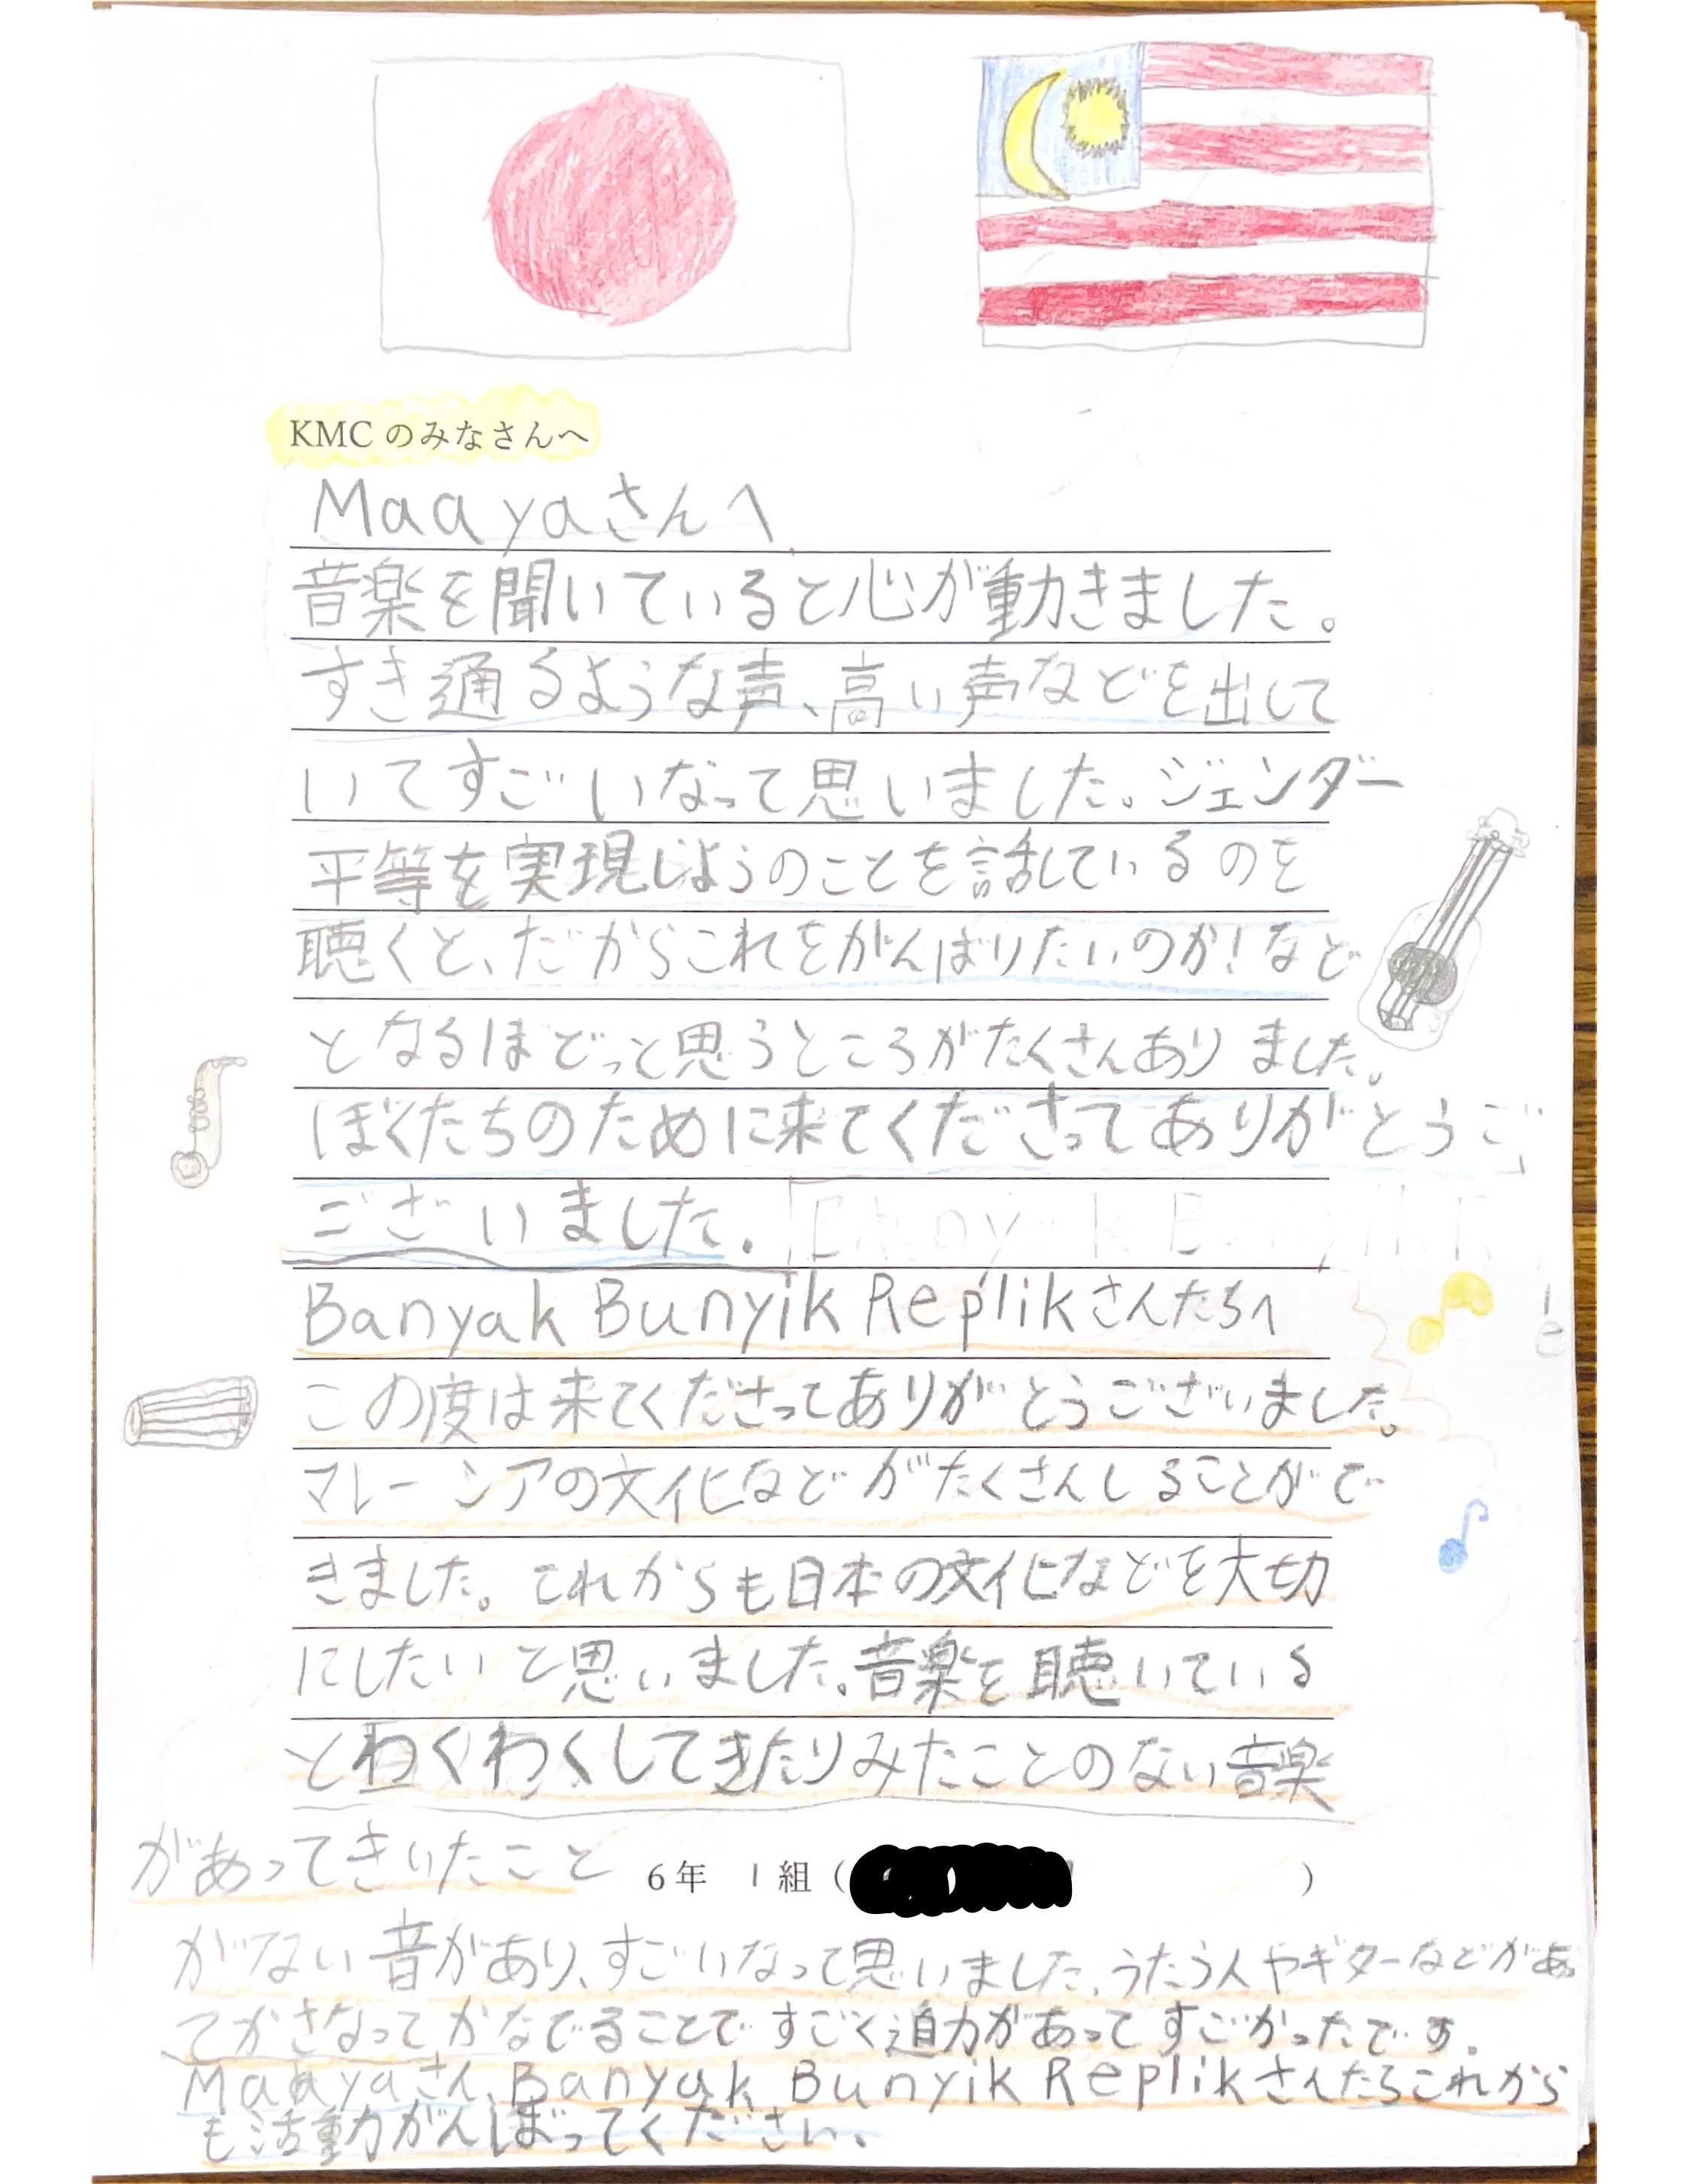 KMCのみなさんへ
Maayaさんへ
音楽を聞いていると心が動きました。
すき通るような声、高い声などを出して
いてすごいなって思いました。ジェンダー
平等を実現しようのことを話しているのを
聴くと、だからこれをがんばりたいのか!など
となるほどっと思うところがたくさんありました。
ぼくたちのために来てくださってありがとうご
ございました。
Banyak Bunyik Replikさんたちへ
この度は来てくださってありがとうございました。
マレーシアの文化などがたくさんしることがで
きました。これからも日本の文化などを大切
にしたいと思いました。音楽を聴いている
とわくわくしてきたりみたことのない音楽
があってきいたこと
6年 1組( )
がない音があり、すごいなって思いました。うたう人やギターなどがあっ
てかさなってかなでることですごく迫力があってすごかったです。
Maayaさん、Banyak Bunyik Replikさんたちこれから
も活動がんばってください。